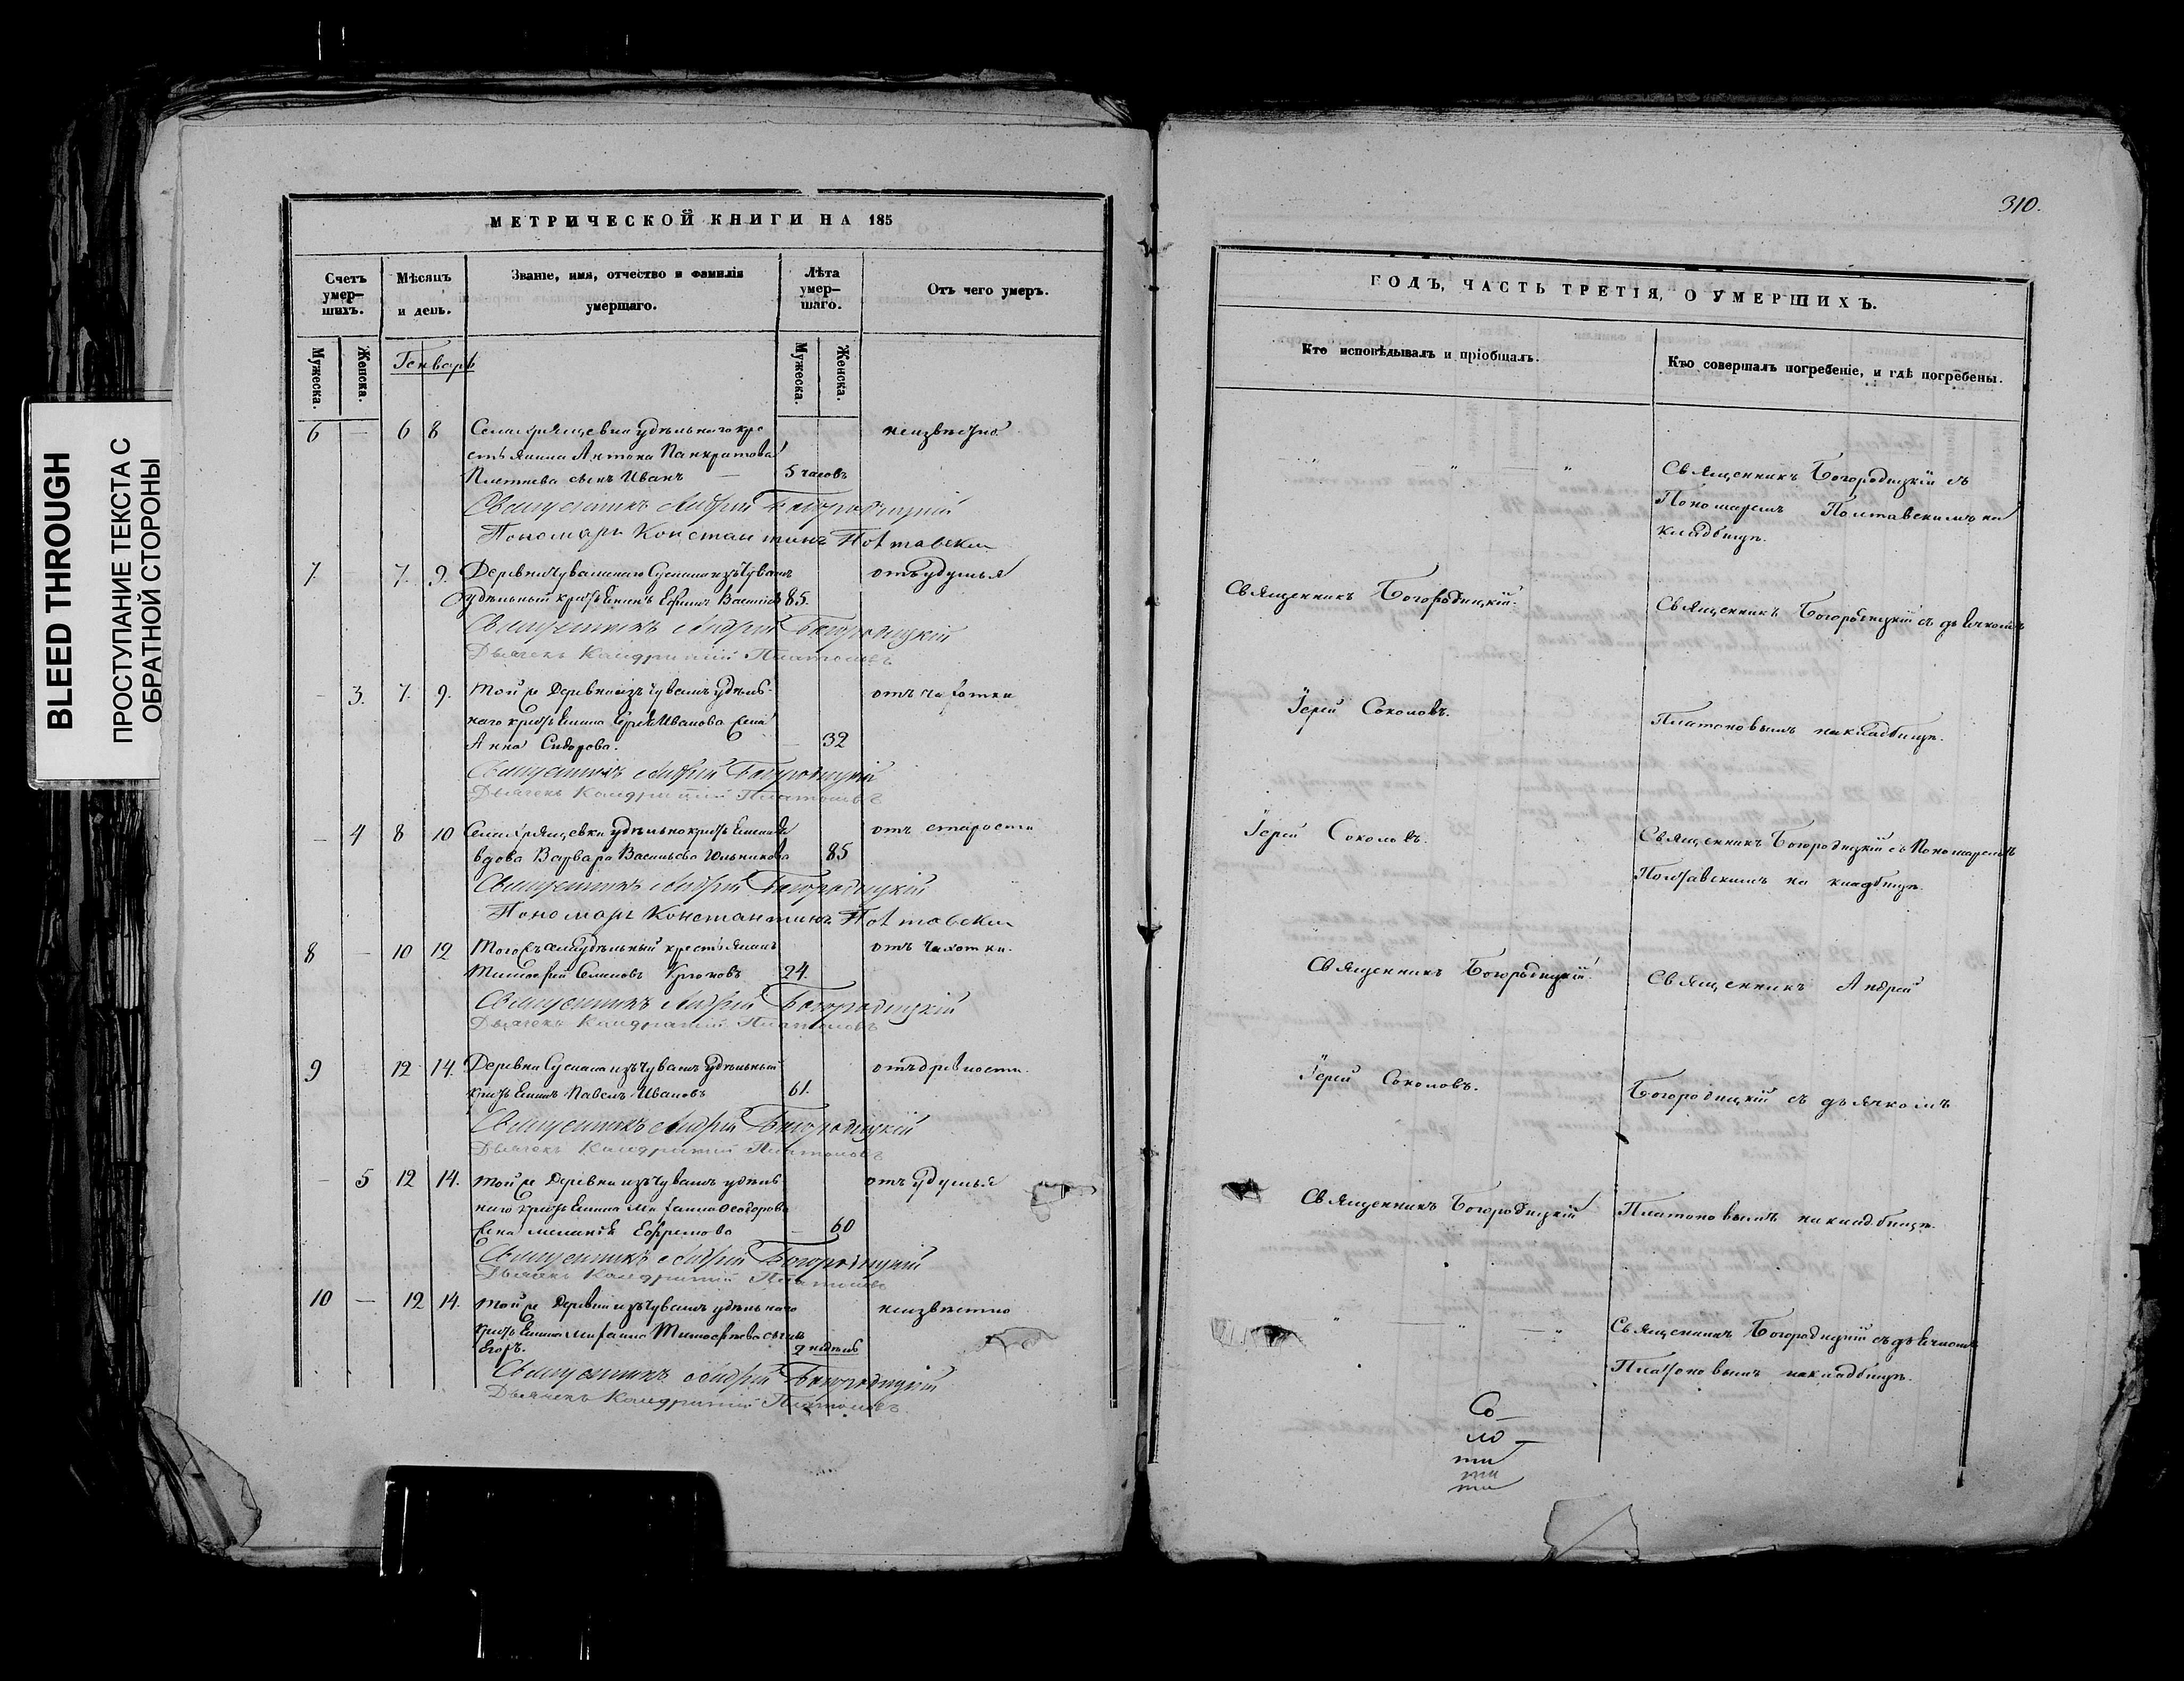 BLEED THROUGH
ПРОСТУПАНИЕ ТЕКСТА С
ОБРАТНОЙ СТОРОНЫ
МЕТРИЧЕСКОЙ КНИГИ НА 185
Счетъ умер-шихъ.
Мѣсяцъ и день.
Званіе, имя, отчество и фамилія умершаго.
Лѣта умер-шаго.
Отъ чего умеръ.
Мужеска.
Женска.
Генварь
Мужеска.
Женска.
6 — 6 8 Села удѣльнаго кре неизвѣстно
стьянина Антона Панкратова
Плетнева сынъ Иванъ — 5 часовъ
Священникъ Андрей Богородицкій
Пономарь Константинъ Полтавскій
7. — 7. 9. Деревни Сускана изъ Чувашъ отъ удушья
удѣльный крестьянинъ Ефимъ 85.
Священникъ Андрей Богородицкій
Дьячекъ Кандратій Платоновъ
— 3. 7. 9. Той же Деревни изъ чувашъ удѣль- отъ чахотки
наго крестьянина Иванова жена
Анна Сидорова. — 32
Священникъ Андрей Богородицкій
Дьячекъ Кандратій Платоновъ
— 4 8 10 Села отъ старости
вдова Варвара Васильева 85
Священникъ Андрей Богородицкій
Пономарь Константинъ Полтавскій
8 — 10 12 Тогожъ села удѣльный крестьянинъ отъ чахотки.
Тимофей Семеновъ Крюковъ 24.
Священникъ Андрей Богородицкій
Дьячекъ Кандратій Платоновъ
9 12 14. Деревни Сускана изъ Чувашъ удѣльный отъ древности.
крестьянинъ Павелъ Ивановъ 61.
Священникъ Андрей Богородицкій
Дьячекъ Кандратій Платоновъ
— 5 12 14. Той же Деревни изъ Чувашъ удѣль- отъ удушья
наго крестьянина Ѳеодорова
жена Ефремова — 60
Священникъ Андрей Богородицкій
Дьячекъ Кандратій Платоновъ
10 — 12 14. Той же Деревни изъ Чувашъ удѣльнаго неизвѣстно
крестьянина Тимофеева сынъ
Егоръ. 2 недѣль
Священникъ Андрей Богородицкій
Дьячекъ Кандратій Платоновъ.
310.
ГОДЪ, ЧАСТЬ ТРЕТІЯ, О УМЕРШИХЪ.
Кто исповѣдывалъ и пріобщалъ.
Кто совершалъ погребеніе, и гдѣ погребены.
" " " Священникъ Богородицкій съ
Пономаремъ Полтавскимъ на
кладбищѣ.
Священникъ Богородицкій. Священникъ Богородицкій съ дьячкомъ
Іерей Соколовъ. Платоновымъ на кладбищѣ.
Іерей Соколовъ. Священникъ Богородицкій съ Пономаремъ
Полтавскимъ на кладбищѣ.
Священникъ Богородицкій. Священникъ Андрей
Іерей Соколовъ. Богородицкій съ дьячкомъ
Священникъ Богородицкій Платоновымъ на кладбищѣ.
" — " — " Священникъ Богородицкій съ дьячкомъ
Платоновымъ на кладбищѣ.
Со-
ло-
ти
ти
ти